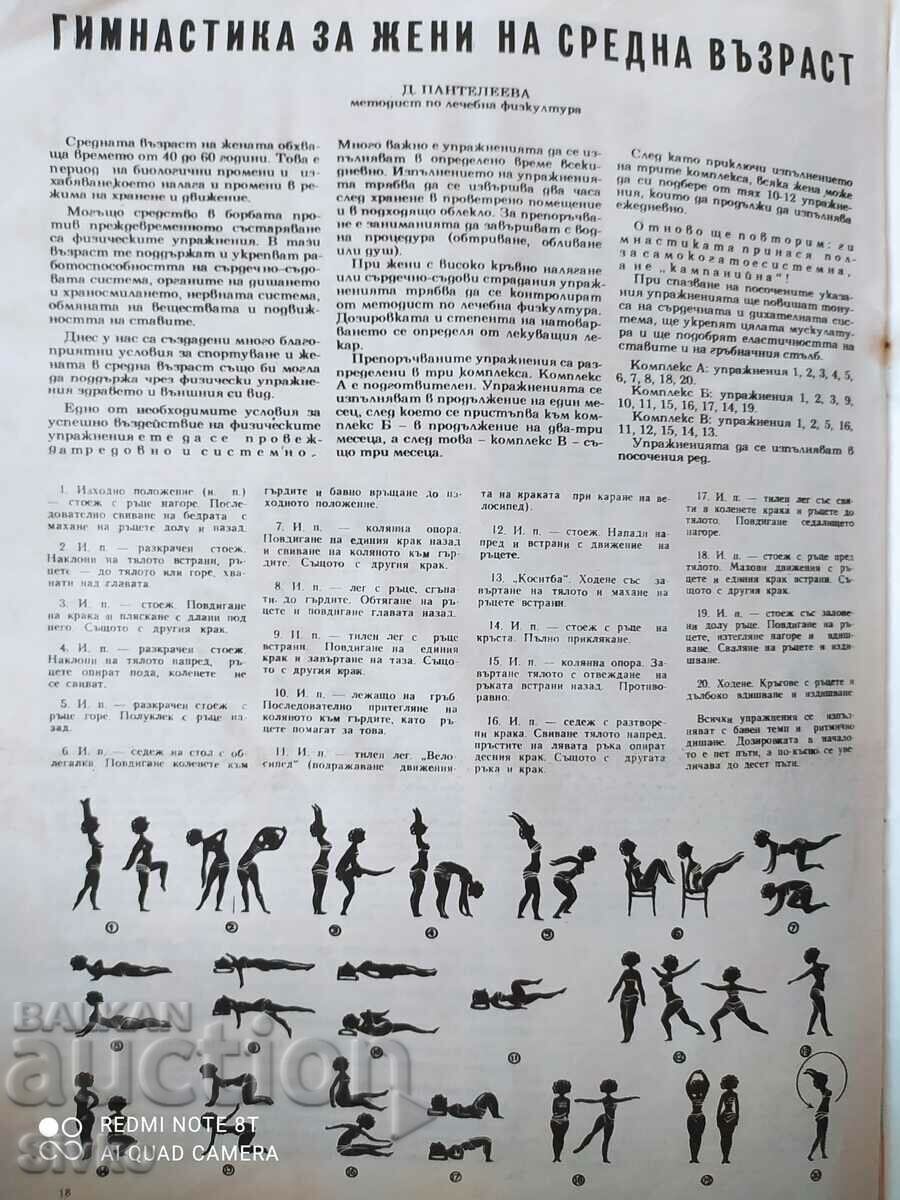 ГИМНАСТИКА ЗА ЖЕНИ НА СРЕДНА ВЪЗРАСТ
Д. ПАНТЕЛЕЕВА
методист по лечебна физкултура
Средната възраст на жената обхва-
ща времето от 40 до 60 години. Това е
период на биологични промени и из-
хабяване,което налага и промени в ре-
жима на хранене и движение.
Могъщо средство в борбата про-
тив преждевременното състаряване
са физическите упражнения. В тази
възраст те поддържат и укрепват ра-
ботоспособността на сърдечно-съдо-
вата система, органите на дишането
и храносмилането, нервната система,
обмяната на веществата и подвиж-
ността на ставите.
Днес у нас са създадени много благо-
приятни условия за спортуване и же-
ната в средна възраст също би могла
да поддържа чрез физически упражне-
ния здравето и външния си вид.
Едно от необходимите условия за
успешно въздействие на физическите
упражнения е те да се провеж-
дат редовно и системно.
Много важно е упражненията да се из-
пълняват в определено време всеки-
дневно. Изпълнението на упражнения-
та трябва да се извършва два часа
след хранене в проветрено помещение
и в подходящо облекло. За препоръчва-
не е заниманията да завършват с вод-
на процедура (обтриване, обливане
или душ).
При жени с високо кръвно налягане
или сърдечно-съдови страдания упраж-
ненията трябва да се контролират
от методист по лечебна физкултура.
Дозировката и степента на натовар-
ването се определя от лекуващия ле-
кар.
Препоръчваните упражнения са раз-
пределени в три комплекса. Комплекс
А е подготвителен. Упражненията се
изпълняват в продължение на един ме-
сец, след което се пристъпва към ком-
плекс Б – в продължение на два-три
месеца, а след това – комплекс В – съ-
що три месеца.
След като приключи изпълнението
на трите комплекса, всяка жена може
да си подбере от тях 10-12 упражне-
ния, които да продължи да изпълнява
ежедневно.
Отново ще повторим: ги-
мнастиката принася пол-
за само когато е системна,
а не „кампанийна“!
При спазване на посочените указа-
ния упражненията ще повишат тону-
са на сърдечната и дихателната сис-
тема, ще укрепят цялата мускулату-
ра и ще подобрят еластичността на
ставите и на гръбначния стълб.
Комплекс А: упражнения 1, 2, 3, 4, 5,
6, 7, 8, 18, 20.
Комплекс Б: упражнения 1, 2, 3, 9,
10, 11, 15, 16, 17, 14, 19.
Комплекс В: упражнения 1, 2, 5, 16,
11, 12, 15, 14, 13.
Упражненията да се изпълняват в
посочения ред.
1. Изходно положение (и. п.)
— стоеж с ръце нагоре. После-
дователно свиване на бедрата с
махане на ръцете долу и назад.
2. И. п. — разкрачен стоеж.
Наклони на тялото встрани, ръце-
те — до тялото или горе, хва-
нати над главата.
3. И. п. — стоеж. Повдигане
на крака и пляскане с длани под
него. Същото с другия крак.
4. И. п. — разкрачен стоеж.
Наклони на тялото напред, ръ-
цете опират пода, коленете не
се свиват.
5. И. п. — разкрачен стоеж с
ръце горе. Полуклек с ръце на-
зад.
6. И. п. — седеж на стол с об-
легалка. Повдигане коленете към
гърдите и бавно връщане до из-
ходното положение.
7. И. п. — колянна опора.
Повдигане на единия крак назад
и свиване на коляното към гър-
дите. Същото с другия крак.
8. И. п. — лег с ръце, сгъна-
ти до гърдите. Обтягане на ръ-
цете и повдигане главата назад.
9. И. п. — тилен лег с ръце
встрани. Повдигане на единия
крак и завъртане на таза. Също-
то с другия крак.
10. И. п. — лежащо на гръб.
Последователно притегляне на
коляното към гърдите, като ръ-
цете помагат за това.
11. И. п. — тилен лег. „Вело-
сипед“ (подражаване движения-
та на краката при каране на ве-
лосипед).
12. И. п. — стоеж. Напади на-
пред и встрани с движение на
ръцете.
13. „Коситба“. Ходене със за-
въртане на тялото и махане на
ръцете встрани.
14. И. п. — стоеж с ръце на
кръста. Пълно приклякане.
15. И. п. — колянна опора. За-
въртане тялото с отвеждане на
ръката встрани назад. Противо-
равно.
16. И. п. — седеж с разтворе-
ни крака. Свиване тялото напред,
пръстите на лявата ръка опират
десния крак. Същото с другата
ръка и крак.
17. И. п. — тилен лег със сви-
ти в коленете крака и ръцете до
тялото. Повдигане седалището
нагоре.
18. И. п. — стоеж с ръце пред
тялото. Махови движения с ръ-
цете и единия крак встрани. Съ-
щото с другия крак.
19. И. п. — стоеж със залове-
ни долу ръце. Повдигане на ръ-
цете, изтегляне нагоре и вдиш-
ване. Сваляне на ръцете и изди-
шване.
20. Ходене. Кръгове с ръцете и
дълбоко вдишване и издишване
Всички упражнения се изпъл-
няват с бавен темп и ритмично
дишане. Дозировката в начало-
то е пет пъти, а по-късно се уве-
личава до десет пъти.
1 2 3 4 5 6 7
8 9 10 11 12 13
14 15 16 17 18 19 20
BALKAN
auction
REDMI NOTE 8T
AI QUAD CAMERA
18